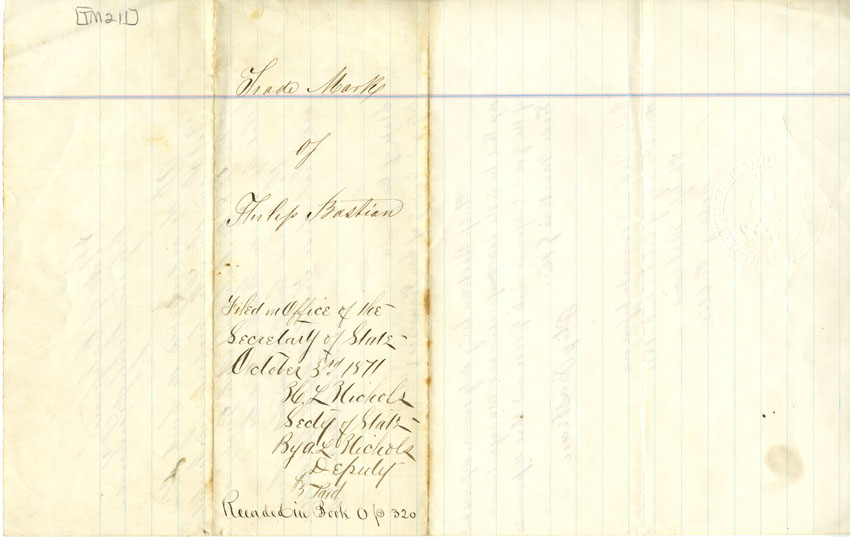 [TM211]
Trade Mark
of
Philip Bastian
Filed in Office of the
Secretary of State
October 3rd 1871
H. L. Nichols
Secty of State
By A L Nichols
Deputy
$5 Paid
Recorded in Book O p 320